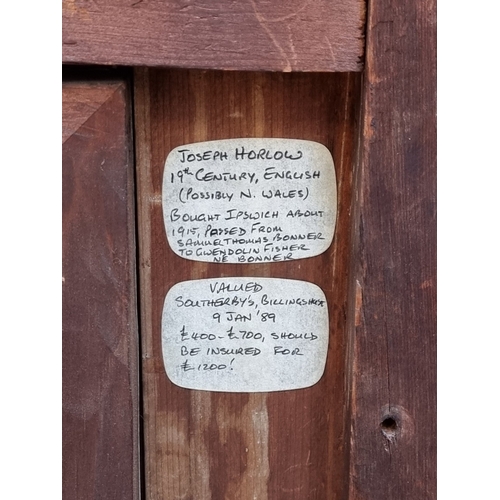 JOSEPH HORLOW
19th CENTURY, ENGLISH
(POSSIBLY N. WALES)
BOUGHT IPSWICH ABOUT
1915, PASSED FROM
SAMUEL THOMAS BONNER
TO GWENDOLIN FISHER
NE BONNER
VALUED
SOUTHERBY'S, BILLINGSHURST
9 JAN '89
£400-£700, SHOULD
BE INSURED FOR
£1200!